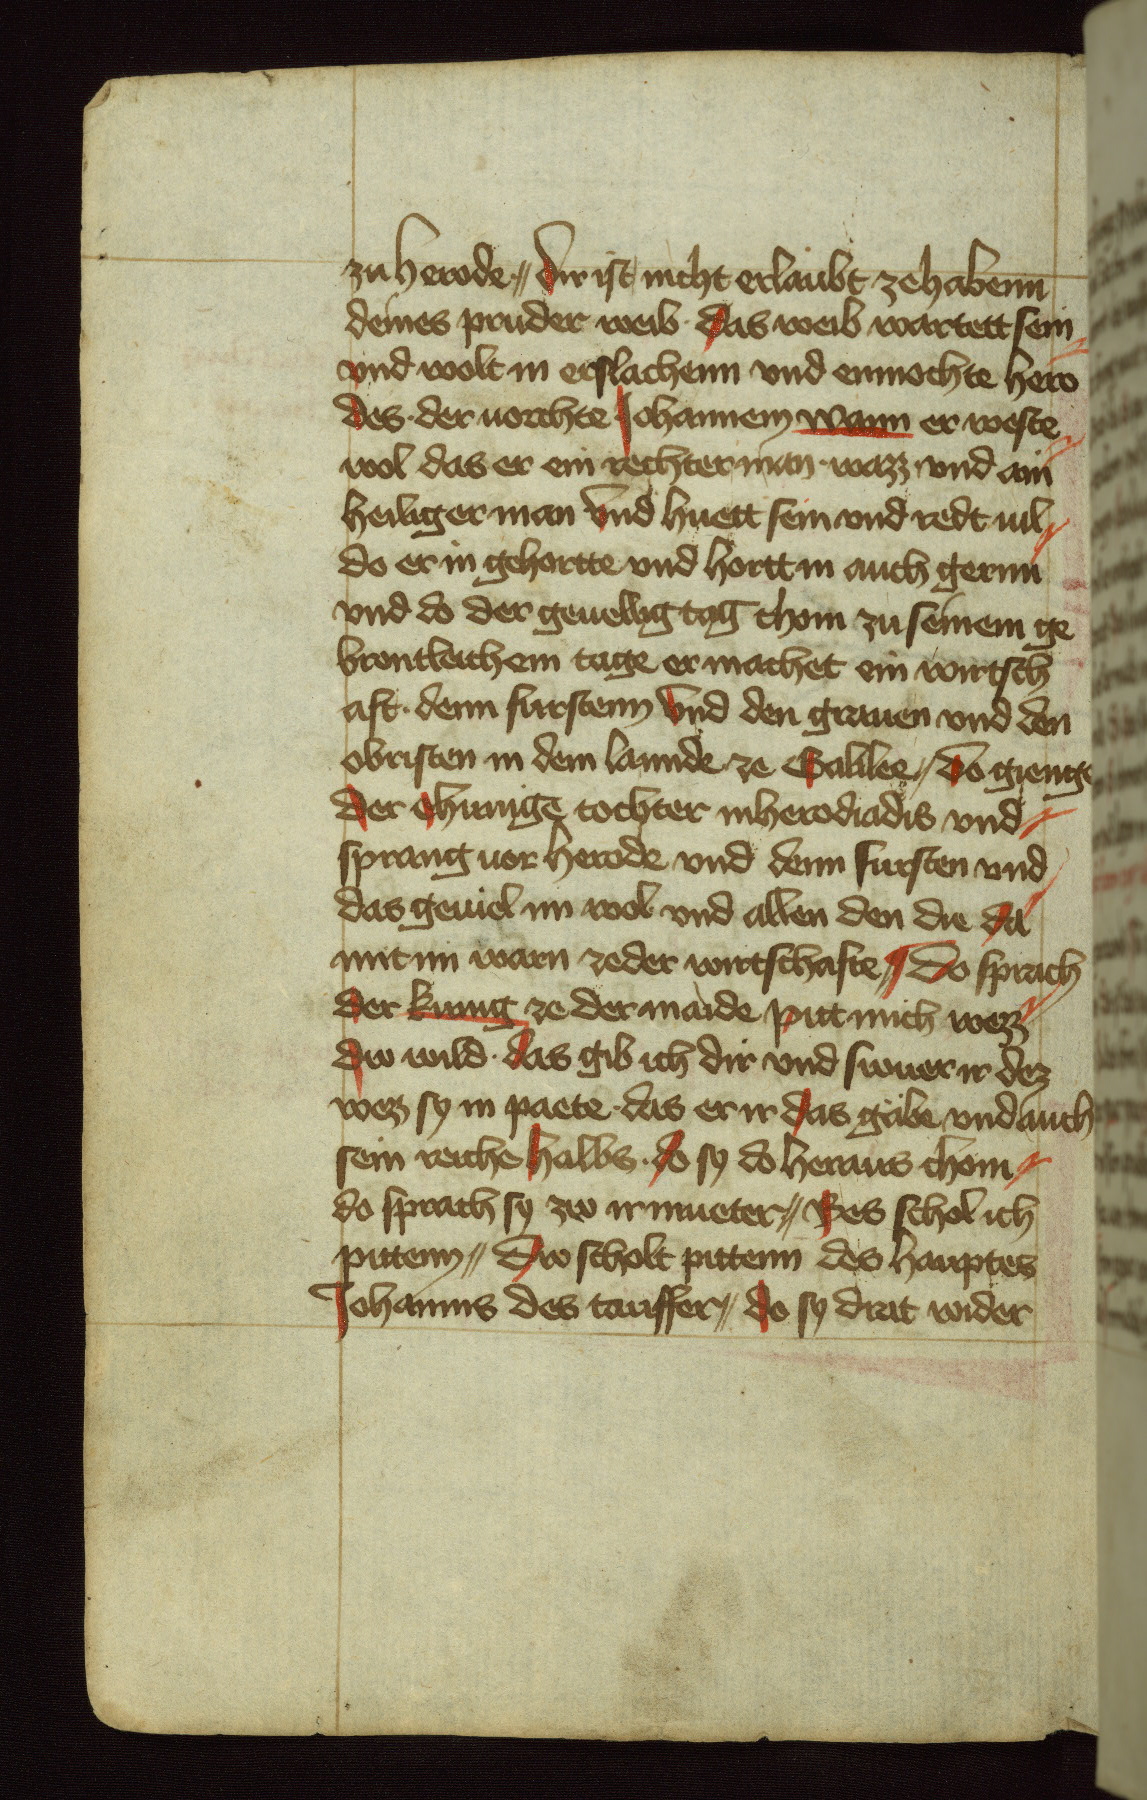 zu herode // dir ist nicht erlaubt ze habenn
deines pruder weib · das weib wartett sein
vnd wolt in erslachenn vnd enmochte hero
des · der uorchte Johannem wann er weste
wol das er ein rechter man · wazz · vnd ain
heiliger man Vnd huett sein vnd redt uil
do er in gehortte vnd hortt in auch gernn
vnd do der geuellig tag chom zu seinem ge
brontleichem tage er machet ein wirtsch
aft · denn furstenn Vnd den grauen vnd den
obristen in dem lannde ze Galilee // do gienge
der chunige tochter in herodiadis vnd
sprang uor herode vnd denn fursten vnd
das geuiel im wol vnd allen den die da
mit im warn ze der wirtschafte // Do sprach
der kunig ze der maide pitt mich wezz
dw wild · das gib ich dir vnd swuer ir dez
wez sy in paete · das er ir das gäbe vnd auch
sein reiche halbs · do sy do heraus chom
do sprach sy zw ir mueter // Wes schol ich
pittenn // Dw scholt pittenn des hauptes
Johannis des tauffer // do sy drat wider